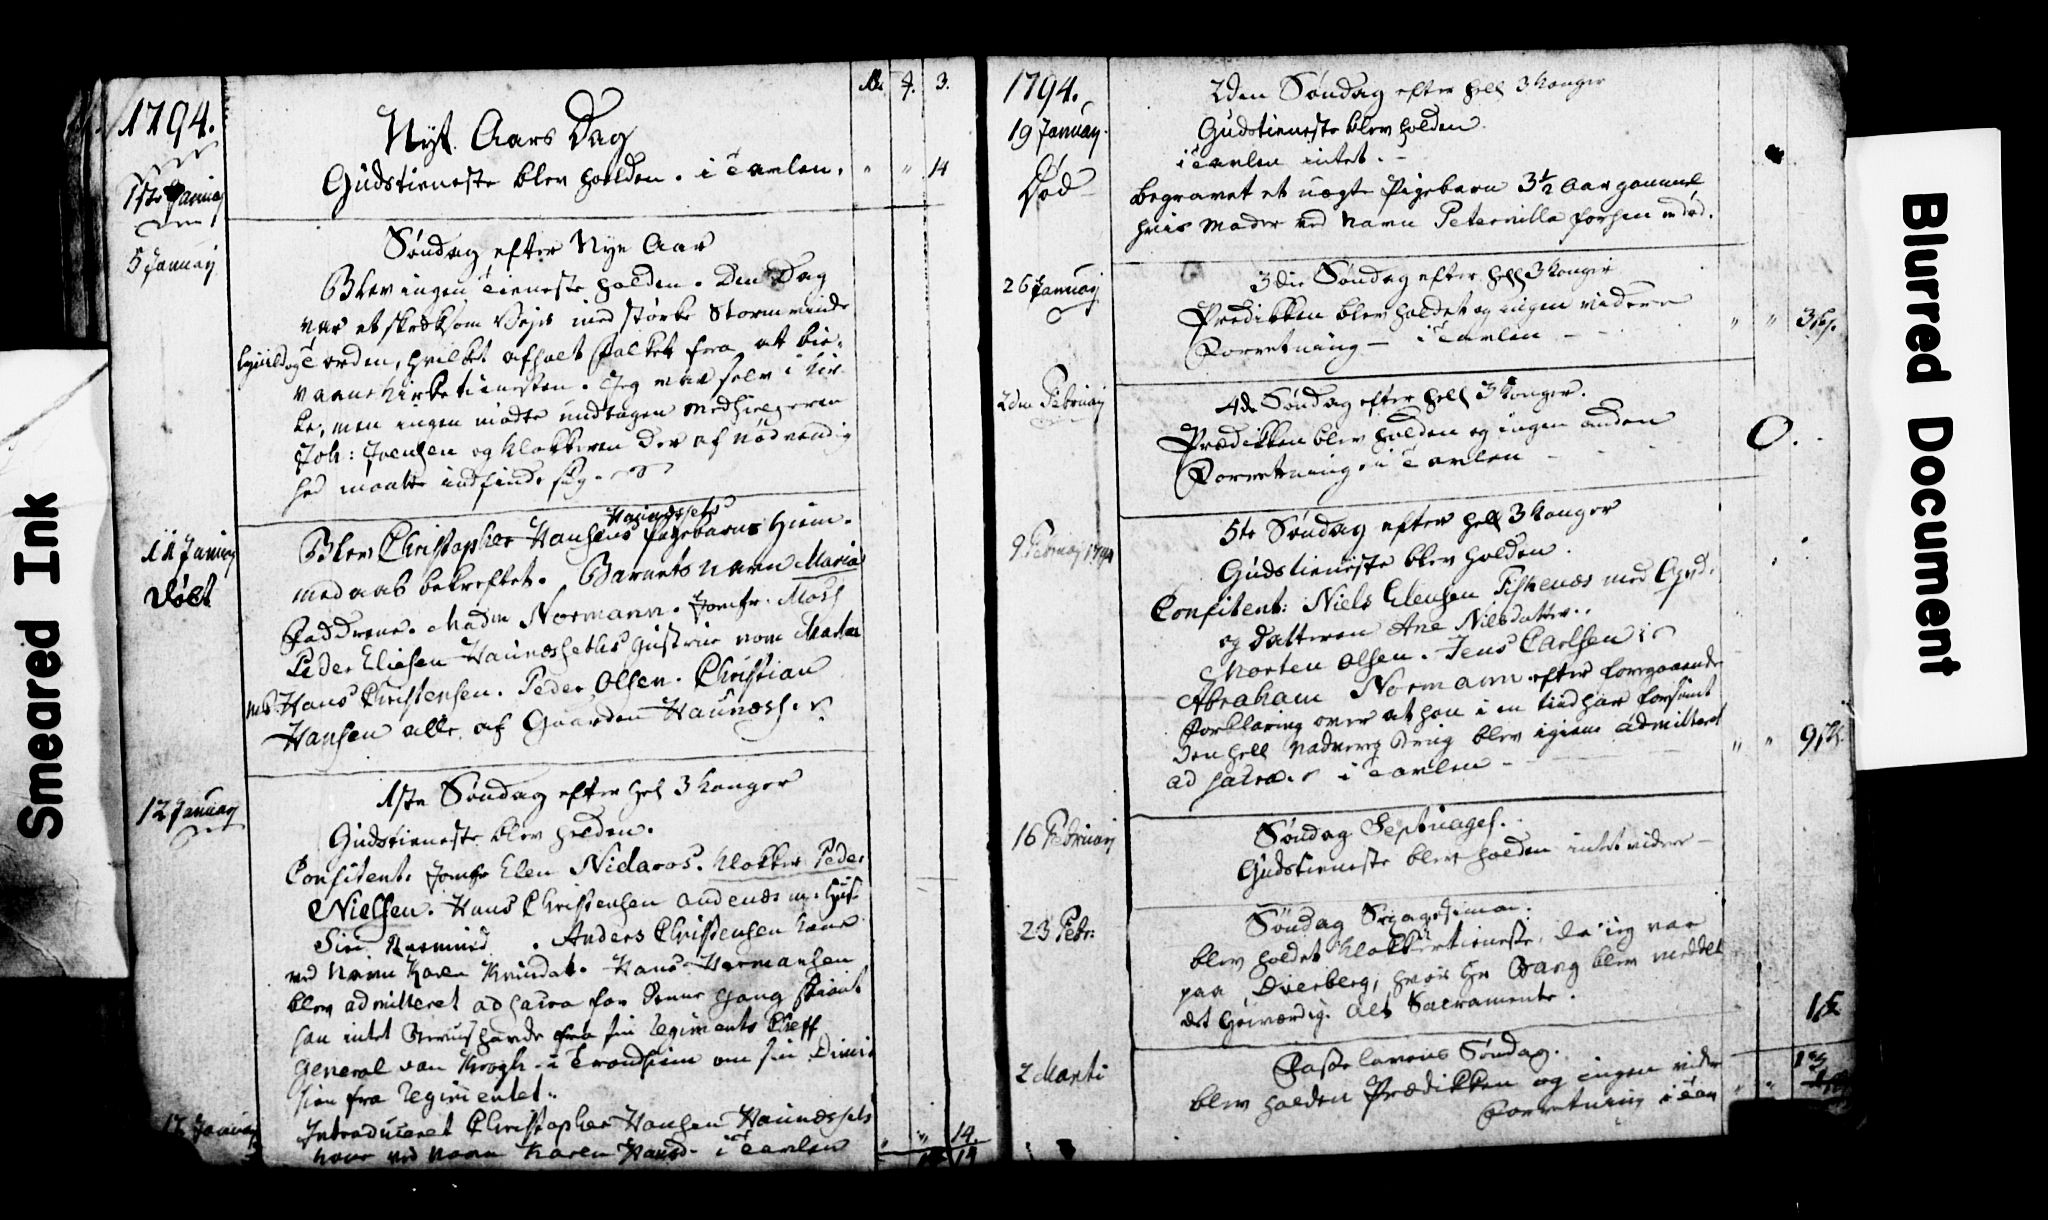 Smeared Ink
1794.
Nyt Aars Dag
1ste Januarj
Gudstieneste blev holden. i Tavlen. " " 14
5 Januarj
Søndag efter Nye Aar
Blev ingen Tieneste holden. Den Dag
var et skræksom Vejr med størke Stormvinde
og Torden, hvilket afholt folket fra at bie-
vaane Kirketienesten. Jeg var selv i Kir-
ke, men ingen mødte undtagen Medhielperen
Joh: Joensen og Klokkeren der af nødvendig
hed maatte indfinde sig.
11 Januarj
Døbt
Haunessets
Blev Christopher Hansens Pigebarns Hiem-
medaab bekreftet. Barnets navn Maria
Faddrene. Madm Normann. Jomfr. Mosh
Peder Eliesen Haunæsseths Hustrue nom Maren
Hans Christensen. Peder Olsen. Christian
Hansen alle af Gaarden Haunæss.
12 Januarj
1ste Søndag efter hel 3 Konger
Gudstieneste blev holden.
Confitent. Jomfr Elen Nidaros. Klokker Peder
Nielsen. Hans Christensen Andenæs m. Hust
Siri. Anders Christensen Kone
ved Navn Karen. Hans Hermansen
blev admitteret ad sacra for denne gang skiønt
han intet Beviis havde fra sin Regiments Cheff
General von Krogh i Trondhiem om sin Dimis
sion fra Regimentet.
Januarj
Introduceret Christopher Hansen Haunæssets
Kone ved Navn Karen Hansd. i Tavlen " " 14.
1794.
19 Januarj.
2den Søndag efter hell 3 Konger
Gudstieneste blev holden.
i Tavlen intet. -
Død
Begravet et uægte Pigebarn 3½ Aar gammel
hvis Moder ved Navn Peternilla forhen er død.
26 Januarj
3die Søndag efter hell 3 Konger
Prædikken blev holdet og ingen videre
Forretning - i Tavlen - " " 3
2den Februarj
4de Søndag efter hell 3 Konger.
Prædikken blev holden og ingen anden
Forretning. i Tavlen - 0.
9 Februarj 1794
5te Søndag efter hell 3 Konger
Gudstieneste blev holden.
Confitent: Niels Elensen Fiskenæs med
og Datteren Ane Nilsdatter.
Morten Olsen. Jens Carlsen
Abraham Normann efter foregaaende
Forklaring over at han i en tiid har forsømt
den hell Nadveres Brug blev igien admitteret
ad sacra. i Tavlen - " " 9
16 Februarj
Søndag Septuages.
Gudstieneste blev holden intet videre -
23 Febr:
Søndag Sexagesimæ.
blev holdet Klokkertieneste, da jeg var
paa Dverberg, hvor Hr Bang blev meddelt
det Høiværdig. Alt. Sacramente.
2 Marti
Fastelavens Søndag.
blev holden Prædikken og ingen vider
Forretning i Tav
Blurred Document